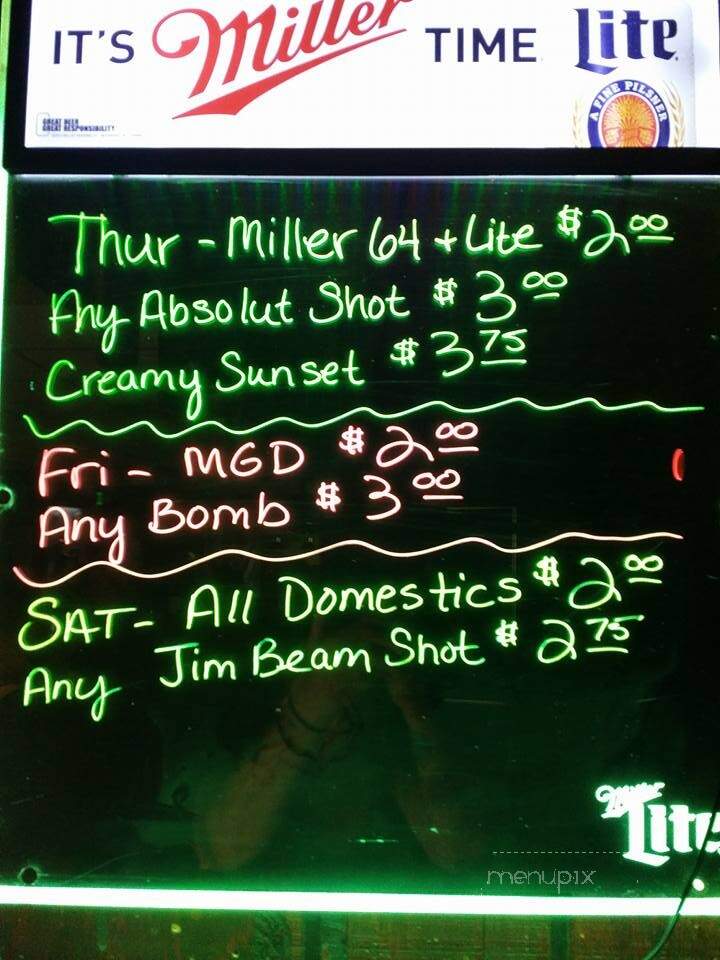 IT'S Miller TIME Lite
A FINE PILSNER
GREAT BEER
GREAT RESPONSIBILITY
Thur - Miller 64 + Lite $2.00
Any Absolut Shot $3.00
Creamy Sunset $3.75
Fri - MGD $2.00
Any Bomb $3.00
SAT - All Domestics $2.00
Any Jim Beam Shot $2.75
Miller
Lite
menupix